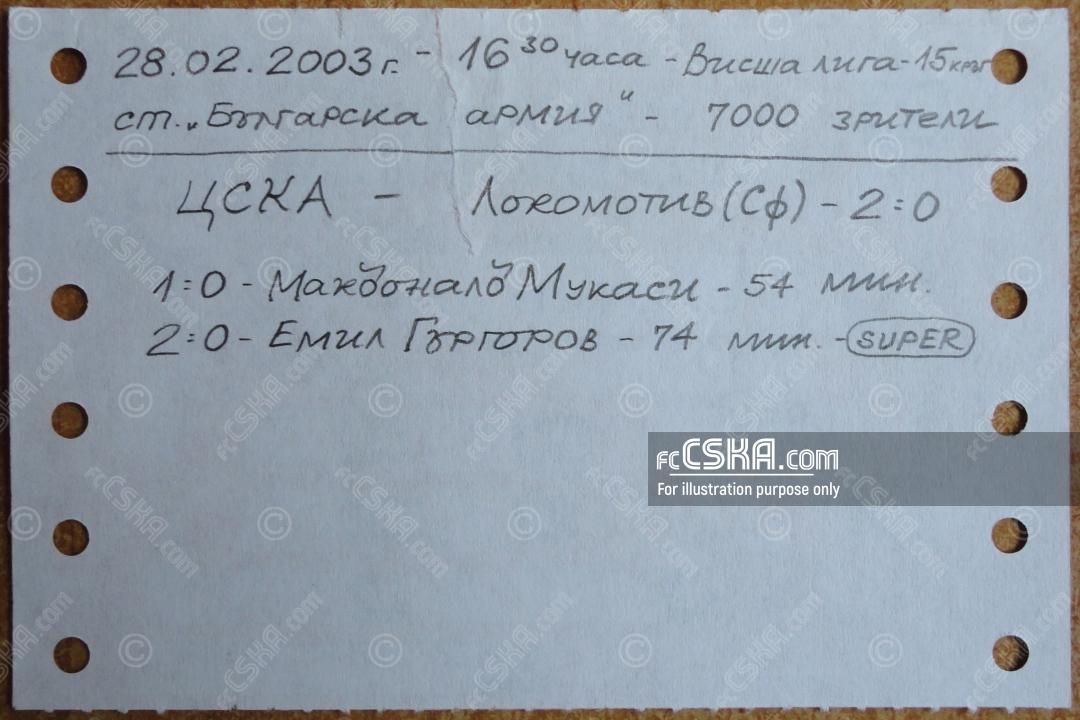 28.02.2003 г. - 16 30 часа - Висша лига - 15 кръг
ст. „Българска армия“ - 7000 зрители
ЦСКА - Локомотив (Сф) - 2:0
1:0 - Макдоналд Мукаси - 54 мин.
2:0 - Емил Гъргоров - 74 мин. - SUPER
fcCSKA.com
For illustration purpose only